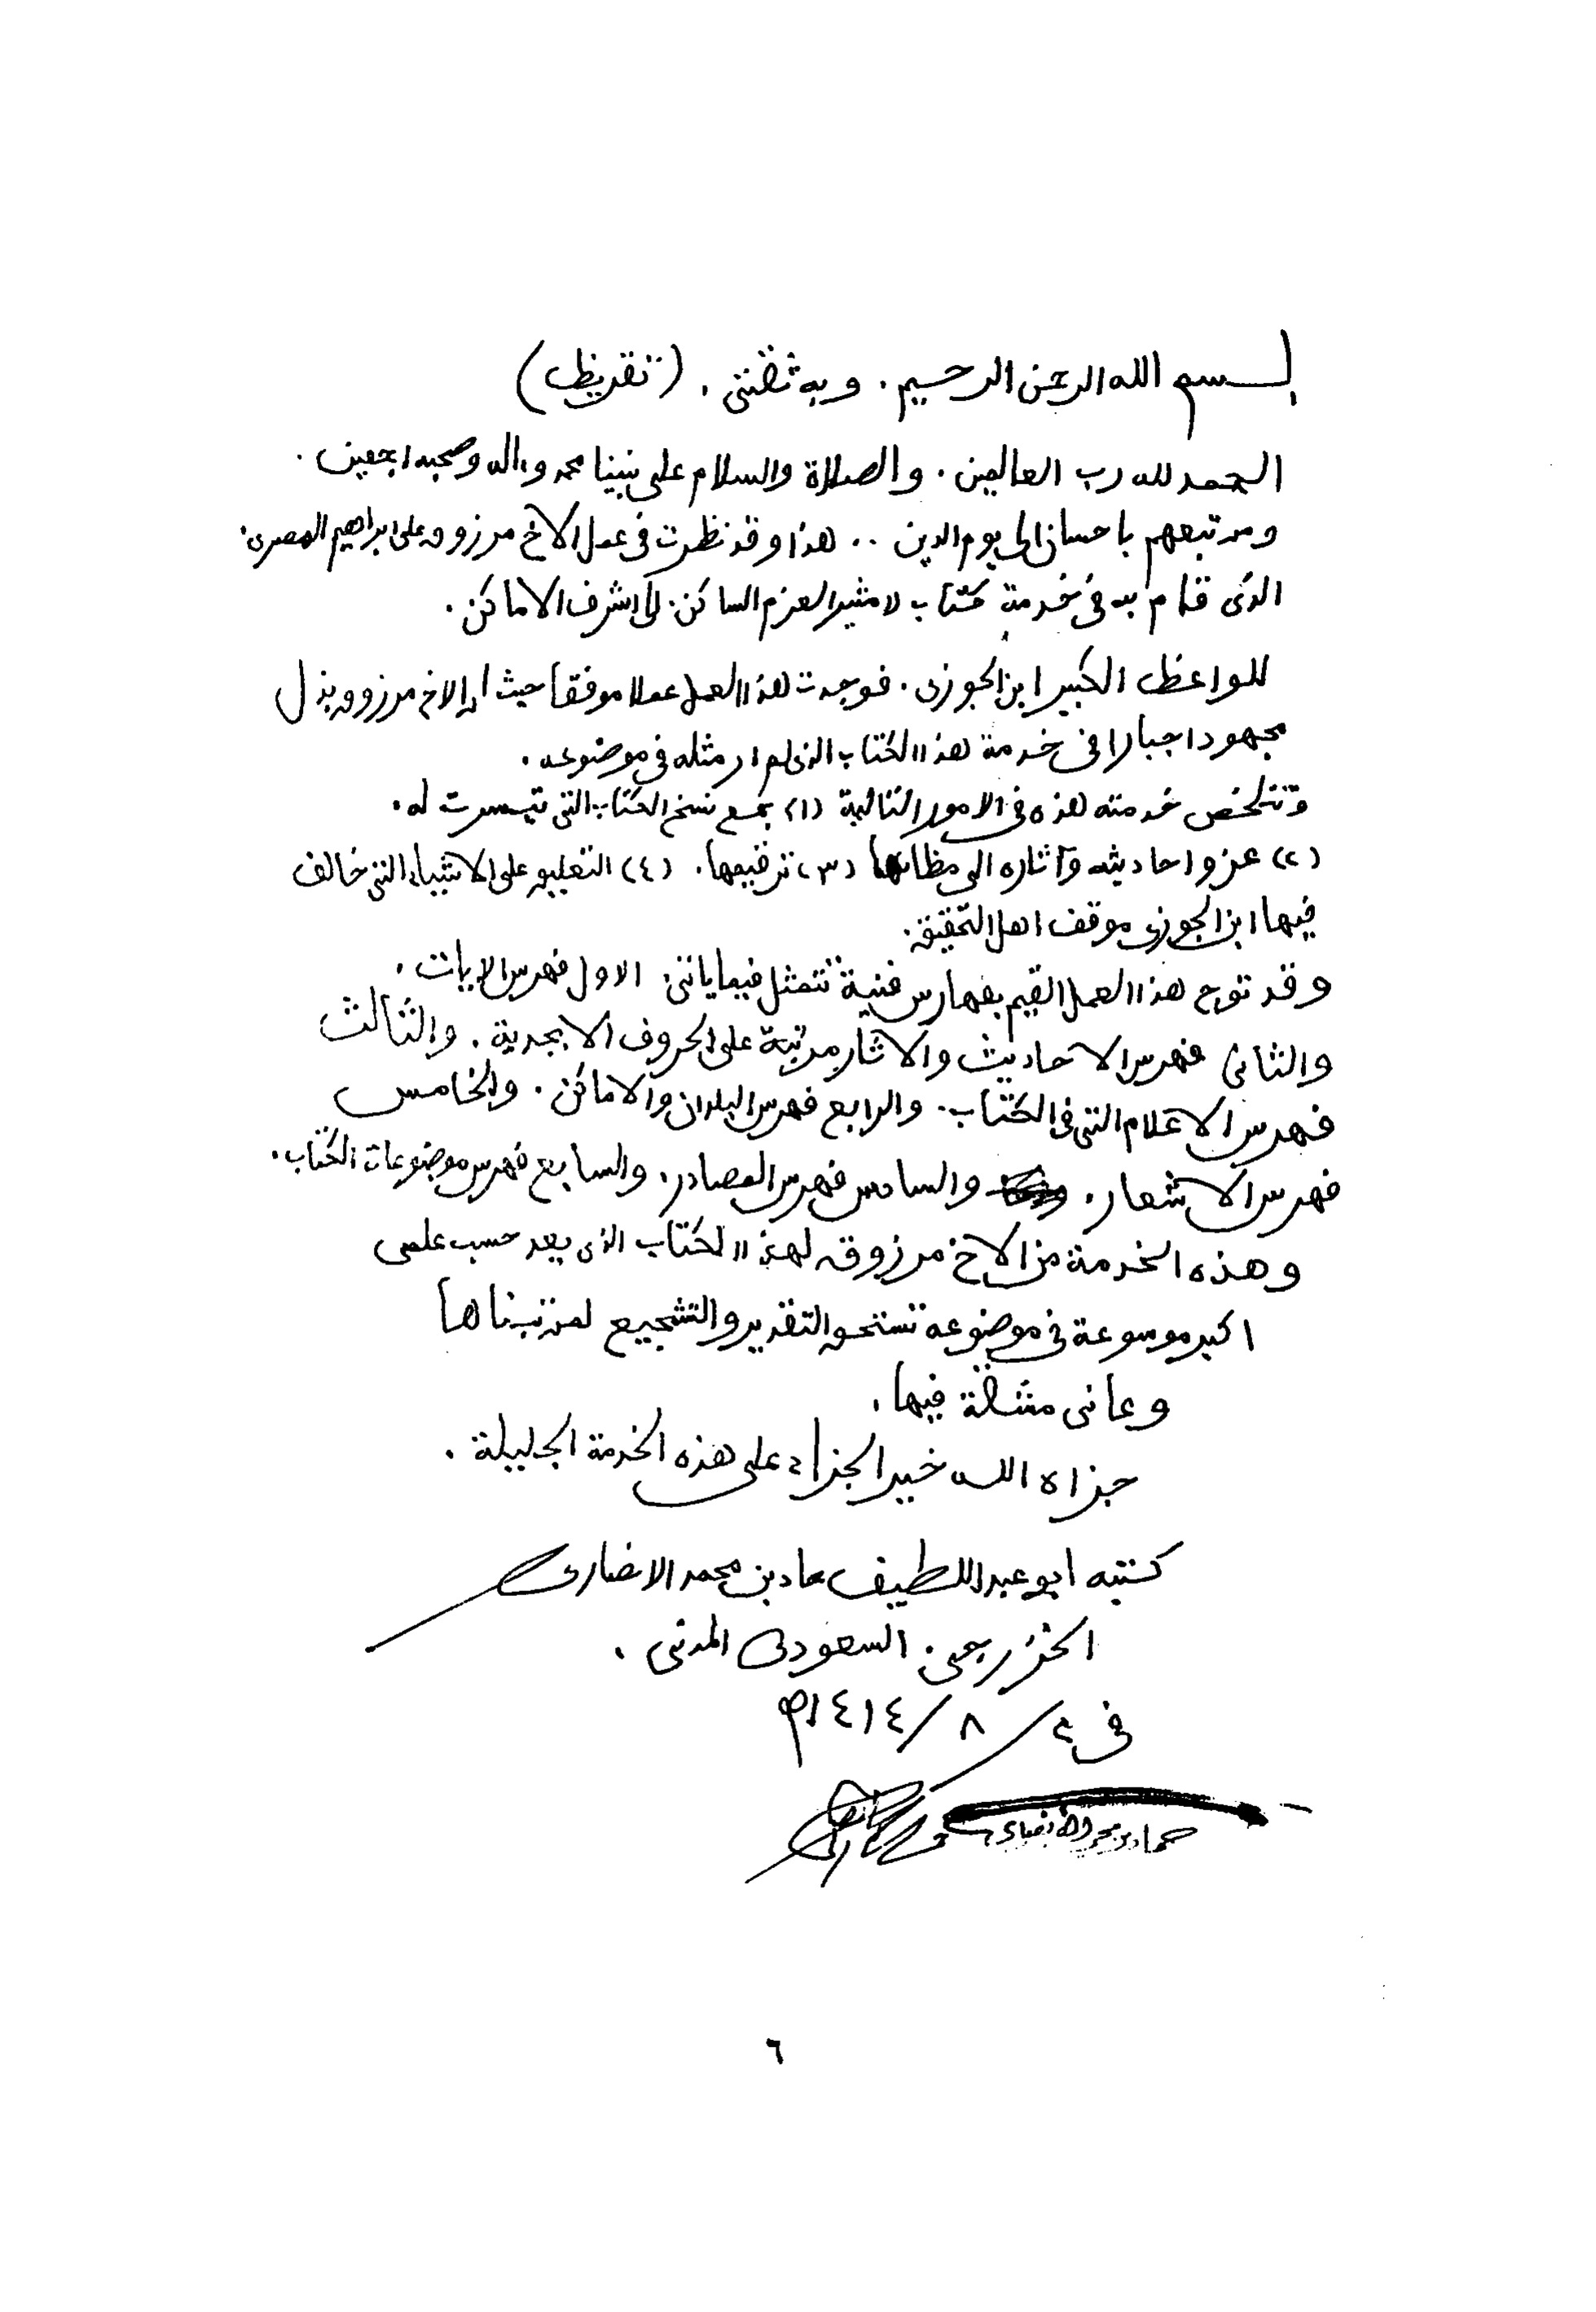 بسم الله الرحمن الرحيم. وبه ثقتي. (تقريظ)
الحمد لله رب العالمين. والصلاة والسلام على نبينا محمد وءاله وصحبه اجمعين.
ومن تبعهم باحسان الى يوم الدين .. هذا وقد نظرت في عمل الاخ مرزوق على ابراهيم المصرى.
الذى قام به في خدمة كتاب مثير العزم الساكن الى اشرف الاماكن.
للواعظ الكبير ابن الجوزى. فوجدت هذا العمل عملا موفقا حيث ان الاخ مرزوق بذل
مجهودا جبارا في خدمة هذا الكتاب الذى لم ار مثله في موضوعه.
وتتلخص خدمته هذه في الامور التالية (١) جمع نسخ الكتاب التي تيسرت له.
(٢) عزو احاديثه وآثاره الى مظانها (٣) ترقيمها. (٤) التعليق على الاشياء التي خالف
فيها ابن الجوزى موقف اهل التحقيق.
وقد توج هذا العمل القيم بفهارس فنية تتمثل فيما ياتي: الاول فهرس الايات.
والثانى فهرس الاحاديث والاثار مرتبة على الحروف الابجدية. والثالث
فهرس الاعلام التي في الكتاب. والرابع فهرس البلدان والاماكن. والخامس
فهرس الاشعار. والسادس فهرس المصادر. والسابع فهرس موضوعات الكتاب.
وهذه الخدمة من الاخ مرزوق لهذا الكتاب الذى يعد حسب علمى
اكبر موسوعة في موضوعه تستحق التقدير والتشجيع لمن تبناها
وعانى مشقة فيها.
جزاه الله خير الجزاء على هذه الخدمة الجليلة.
كتبه ابو عبد اللطيف حماد بن محمد الانصارى
الخزرجى. السعودى المدنى.
في ٤/ ٨/ ١٤١٤هـ
حماد بن محمد الأنصاري
٦